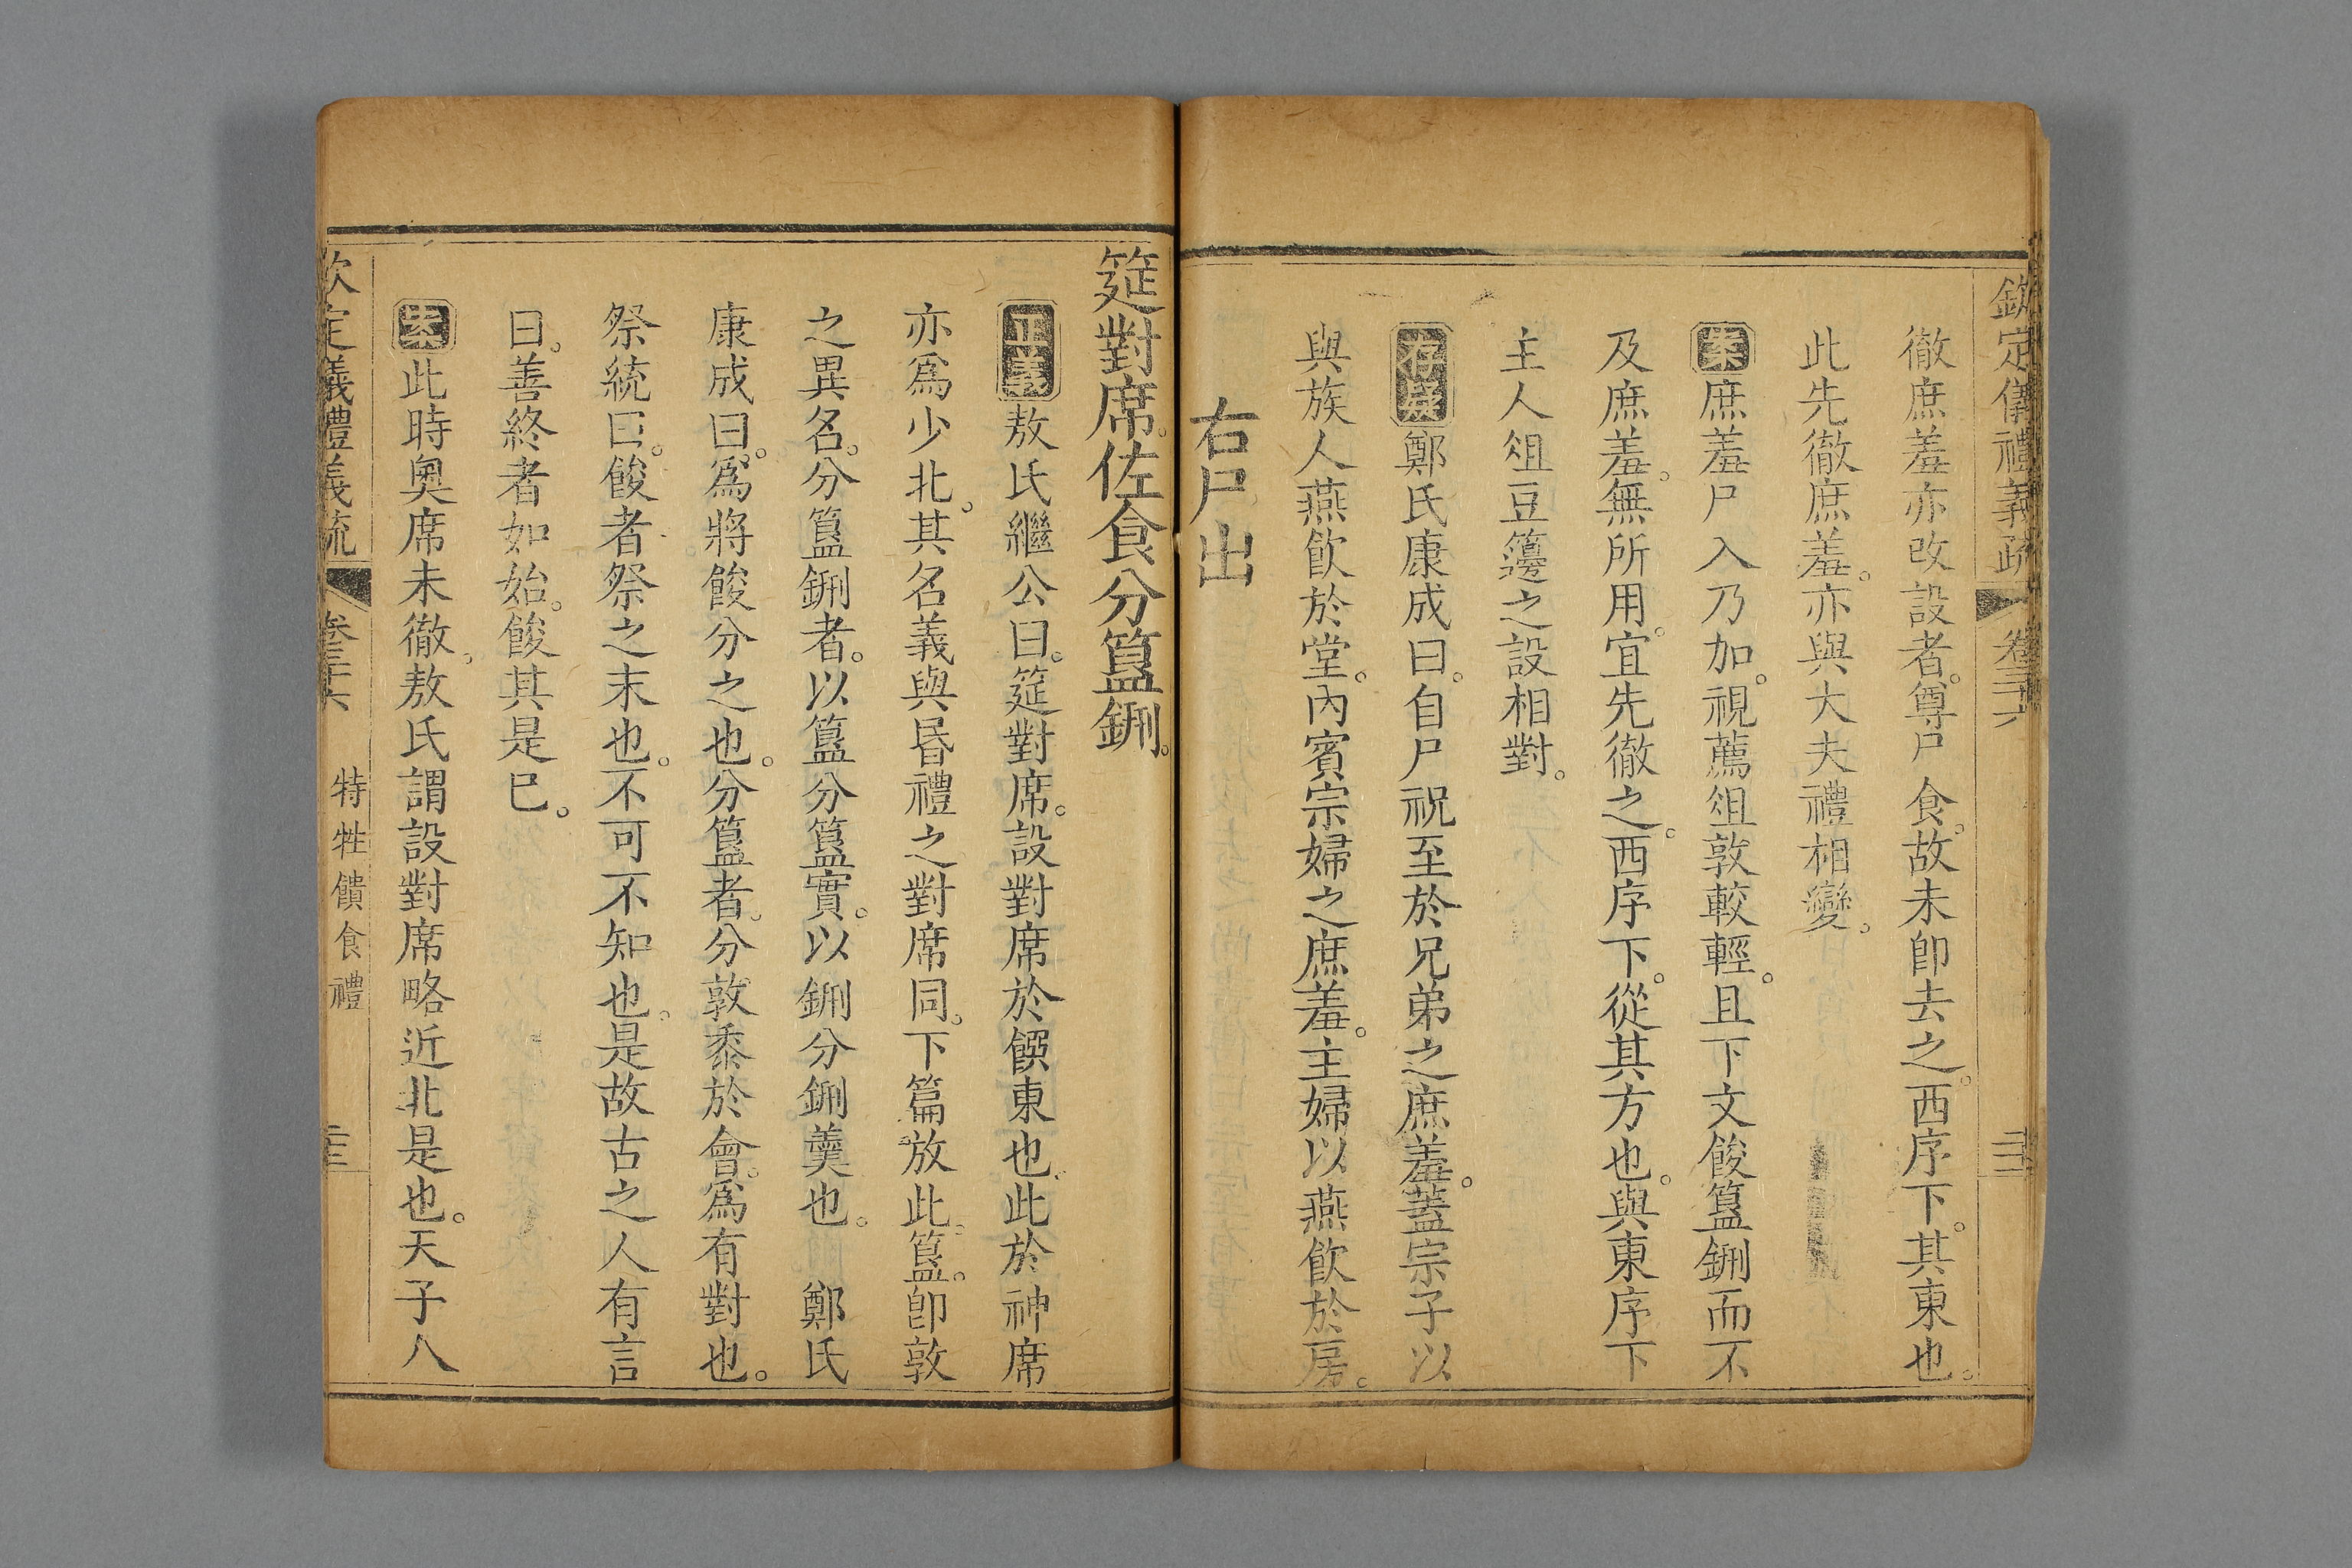 欽定儀禮義疏 卷三十六
徹庶羞亦改設者。尊尸食。故未卽去之。西序下。其東也。
此先徹庶羞。亦與大夫禮相變。
案庶羞尸入乃加。視薦俎敦較輕。且下文餕簋鉶而不
及庶羞。無所用。宜先徹之。西序下。從其方也。與東序下
主人俎豆籩之設相對。
存疑鄭氏康成曰。自尸祝至於兄弟之庶羞。蓋宗子以
與族人燕飮於堂。內賓宗婦之庶羞。主婦以燕飮於房。
右尸出
筵對席。佐食分簋鉶。
正義敖氏繼公曰。筵對席。設對席於饌東也。此於神席
亦爲少北。其名義與昏禮之對席同。下篇放此。簋。卽敦
之異名。分簋鉶者。以簋分簋實。以鉶分鉶羹也。 鄭氏
康成曰。爲將餕分之也。分簋者。分敦黍於會。爲有對也。
祭統曰。餕者祭之末也。不可不知也。是故古之人有言
曰。善終者如始。餕其是已。
案此時奧席未徹。敖氏謂設對席略近北是也。天子八
欽定儀禮義疏 卷三十六 特牲饋食禮